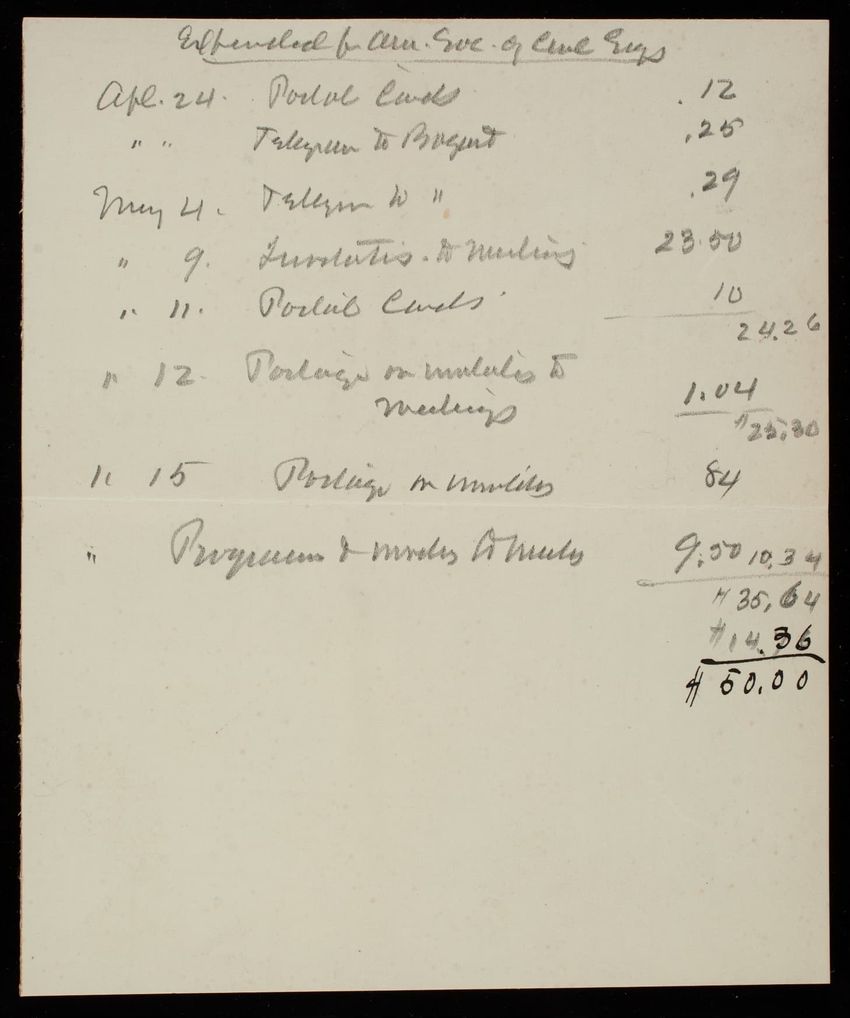 Expended for Am. Soc. of Civil Engs
Apl. 24. Postal Cards .12
" " Telegram to Bogart .25
May 4. Telegm to " .29
" 9. Invitatis. to Meeting 23.50
" 11. Postal Cards 10
24.26
" 12. Postage on invitatis to
Meetings 1.04
$25.30
" 15 Postage on 84
" Programm & to 9.50 10.34
$35.64
$14.36
$50.00